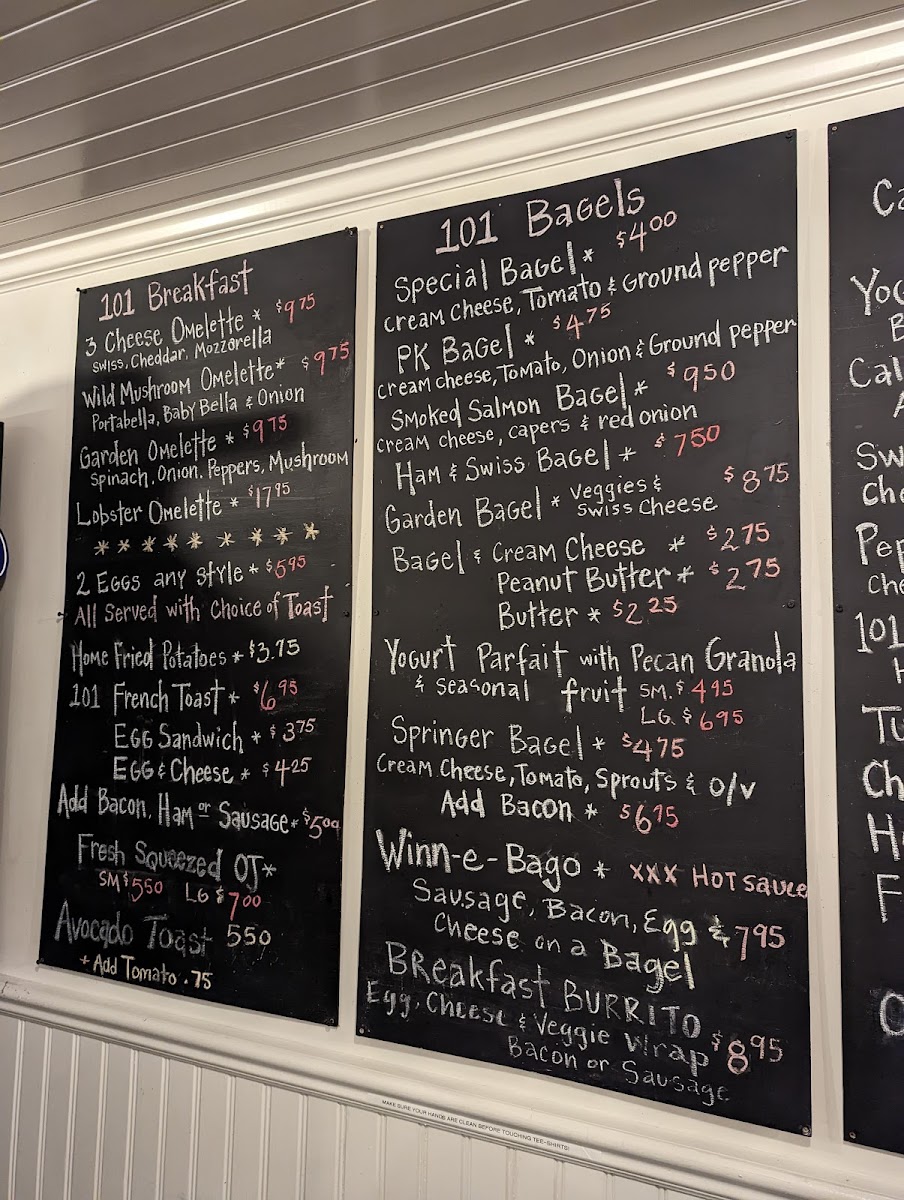 101 Breakfast
3 Cheese Omelette * $9.75
Swiss, Cheddar, Mozzorella
Wild Mushroom Omelette * $9.75
Portabella, Baby Bella & Onion
Garden Omelette * $9.75
Spinach, Onion, Peppers, Mushroom
Lobster Omelette * $17.95
* * * * * * * * * *
2 Eggs any style * $5.95
All Served with Choice of Toast
Home Fried Potatoes * $3.75
101 French Toast * $6.95
Egg Sandwich * $3.75
Egg & Cheese * $4.25
Add Bacon, Ham or Sausage * $5.00
Fresh Squeezed OJ *
SM $5.50 LG $7.00
Avocado Toast 5.50
+ Add Tomato .75
101 Bagels
Special Bagel * $4.00
cream cheese, Tomato & Ground pepper
PK Bagel * $4.75
cream cheese, Tomato, Onion & Ground pepper
Smoked Salmon Bagel * $9.50
cream cheese, capers & red onion
Ham & Swiss Bagel * $7.50
Garden Bagel * Veggies & Swiss Cheese $8.75
Bagel & Cream Cheese * $2.75
Peanut Butter * $2.75
Butter * $2.25
Yogurt Parfait with Pecan Granola
& Seasonal fruit SM. $4.95
LG. $6.95
Springer Bagel * $4.75
Cream Cheese, Tomato, Sprouts & O/V
Add Bacon * $6.75
Winn-e-Bago * XXX Hot Sauce
Sausage, Bacon, Egg &
Cheese on a Bagel $7.95
Breakfast BURRITO
Egg, Cheese & Veggie Wrap $8.95
Bacon or Sausage
MAKE SURE YOUR HANDS ARE CLEAN BEFORE TOUCHING TEE-SHIRTS!
101